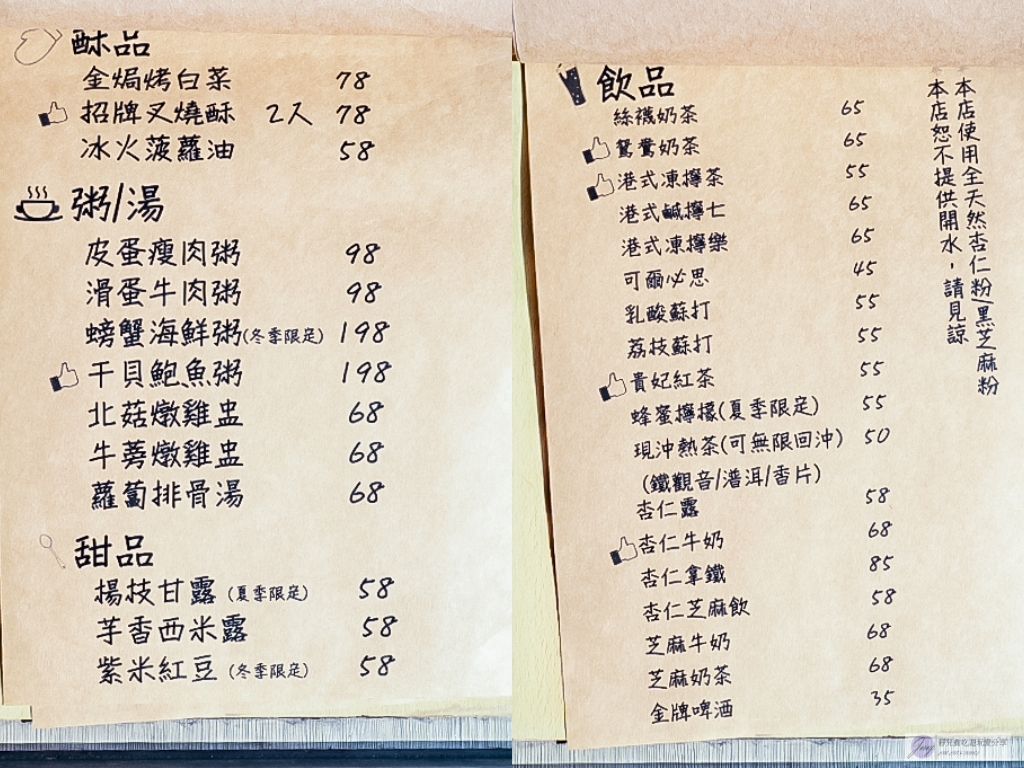 酥品
金焗烤白菜 78
招牌叉燒酥 2入 78
冰火菠蘿油 58
粥/湯
皮蛋瘦肉粥 98
滑蛋牛肉粥 98
螃蟹海鮮粥(冬季限定) 198
干貝鮑魚粥 198
北菇燉雞盅 68
牛蒡燉雞盅 68
蘿蔔排骨湯 68
甜品
楊枝甘露(夏季限定) 58
芋香西米露 58
紫米紅豆(冬季限定) 58
飲品
絲襪奶茶 65
鴛鴦奶茶 65
港式凍檸茶 55
港式鹹檸七 65
港式凍檸樂 65
可爾必思 45
乳酸蘇打 55
荔枝蘇打 55
貴妃紅茶 55
蜂蜜檸檬(夏季限定) 55
現沖熱茶(可無限回沖) 50
(鐵觀音/潽洱/香片)
杏仁露 58
杏仁牛奶 68
杏仁拿鐵 85
杏仁芝麻飲 58
芝麻牛奶 68
芝麻奶茶 68
金牌啤酒 35
本店使用全天然杏仁粉/黑芝麻粉
本店恕不提供開水，請見諒